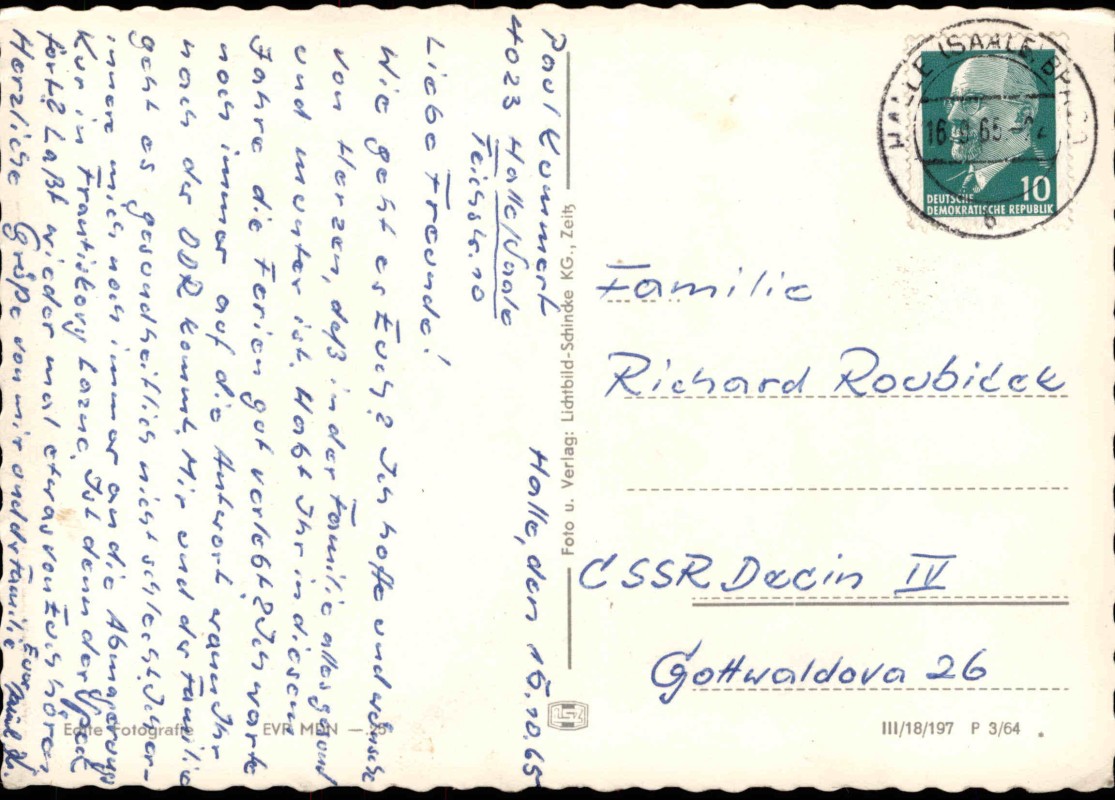 Paul Kummert
4023 Halle/Saale
Teichstr. 10
Halle, den 16.10.65
Liebe Freunde!
Wie geht es Euch? Ich hoffe und wünsche
von Herzen, daß in der Familie alles gesund
und munter ist. Habt Ihr in diesem
Jahre die Ferien gut verlebt? Ich warte
noch immer auf die Antwort wann Ihr
nach der DDR kommt. Mir und der Familie
geht es gesundheitlich nicht schlecht. Ich er-
innere mich noch immer an die
Kur in Frantiskovy Lazne. Ist denn der
fort? Laßt wieder mal etwas von Euch hören.
Herzliche Grüße von mir und der Familie
Euer Paul K.
Foto u. Verlag: Lichtbild-Schincke KG., Zeitz
Echte Fotografie EVP MDN —.25
HALLE (SAALE) BPA
16.10.65
DEUTSCHE
DEMOKRATISCHE REPUBLIK
10
Familie
Richard Roubíček
CSSR Decin IV
Gottwaldova 26
III/18/197 P 3/64